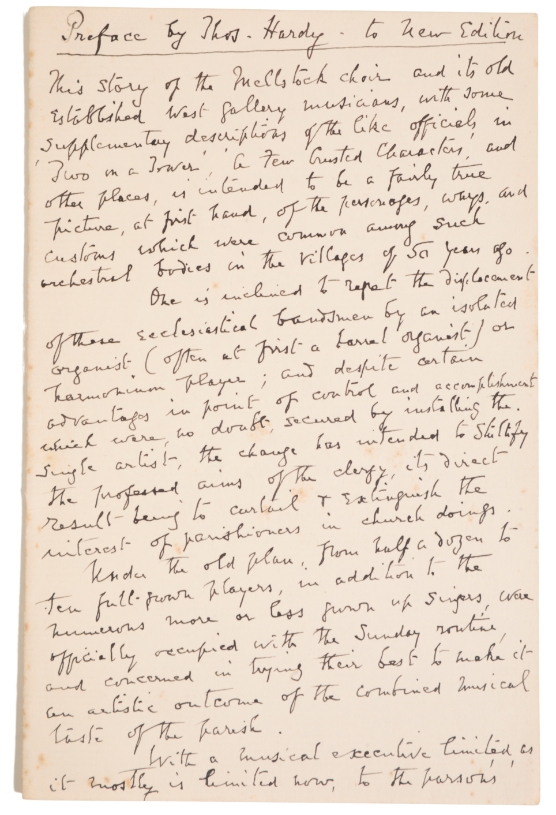 Preface by Thos. Hardy - to New Edition
This story of the Mellstock choir and its old
established west gallery musicians, with some
supplementary descriptions of the like officials in
'Two on a Tower', 'A Few Crusted Characters', and
other places, is intended to be a fairly true
picture, at first hand, of the personages, ways, and
customs which were common among such
orchestral bodies in the villages of 50 years ago.
One is inclined to regret the displacement
of these ecclesiastical bandsmen by an isolated
organist (often at first a barrel organist) or
harmonium player; and despite certain
advantages in point of control and accomplishment
which were, no doubt, secured by installing the
single artist, the change has intended to stultify
the professed aims of the clergy, its direct
result being to curtail & extinguish the
interest of parishioners in church doings.
Under the old plan, from half a dozen to
ten full-grown players, in addition to the
numerous more or less grown up singers, were
officially occupied with the Sunday routine,
and concerned in trying their best to make it
an artistic outcome of the combined musical
taste of the parish.
With a musical executive limited, as
it mostly is limited now, to the parson's